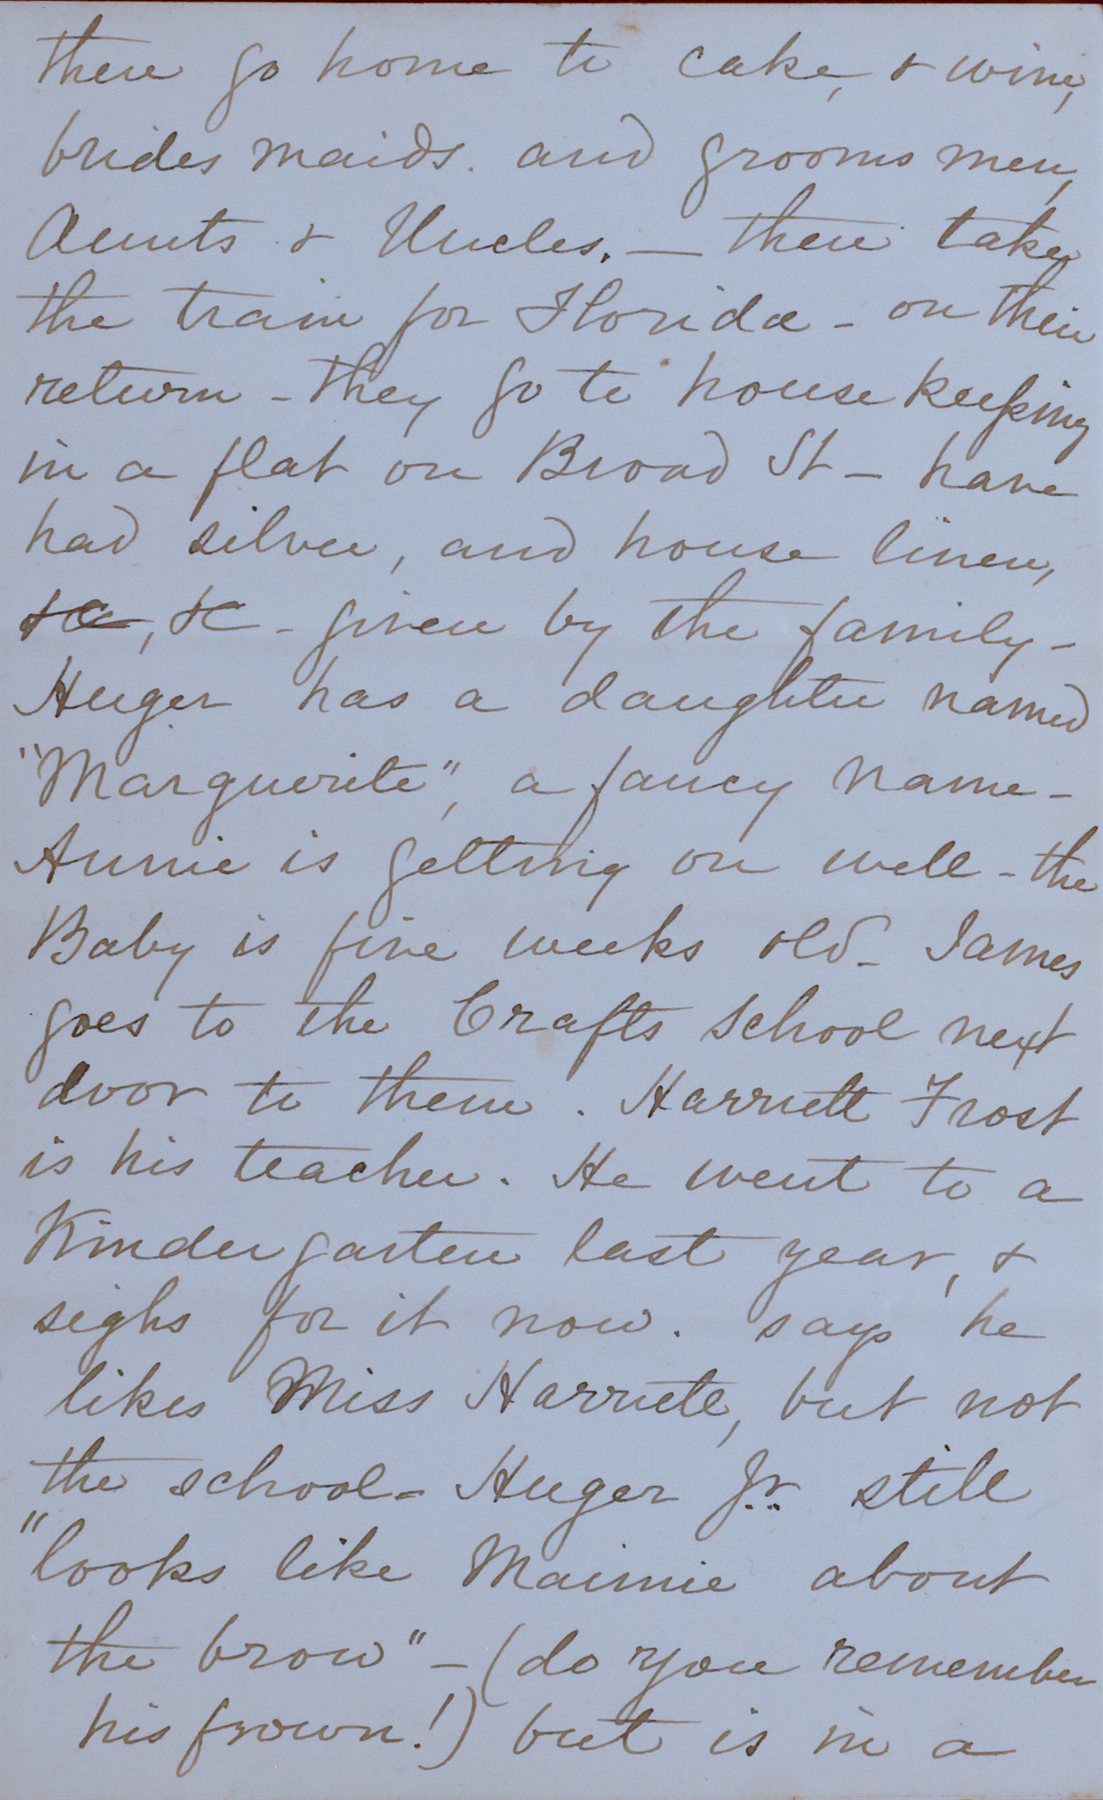 then go home to cake, & wine,
brides maids. and grooms men,
Aunts & Uncles. — then take
the train for Florida - on their
return - they go to house keeping
in a flat on Broad St — have
had silver, and house linen,
&c, &c - given by the family -
Huger has a daughter named
"Marguerite", a fancy name -
Annie is getting on well - the
Baby is five weeks old - James
goes to the Crafts School next
door to them. Harriett Frost
is his teacher. He went to a
Kindergarten last year, &
sighs for it now. says he
likes Miss Harriett, but not
the school - Huger Jr. still
"looks like Maimie about
the brow" - (do you remember
his frown!) but is in a